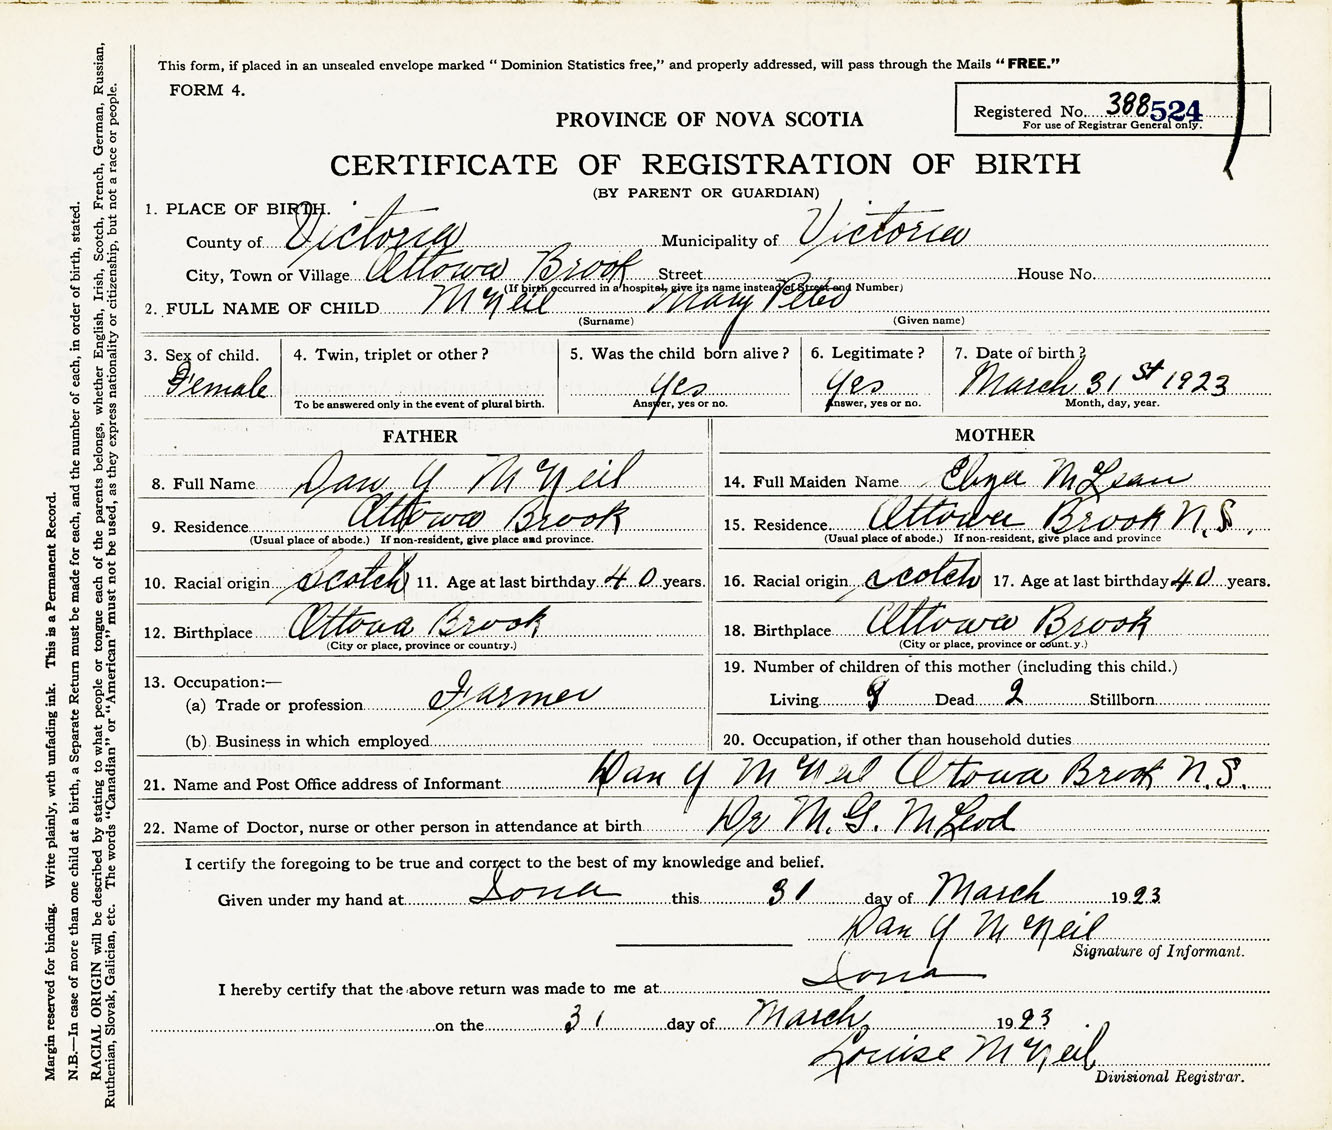 This form, if placed in an unsealed envelope marked "Dominion Statistics free," and properly addressed, will pass through the Mails "FREE."
FORM 4.
Registered No. 388524
For use of Registrar General only.
PROVINCE OF NOVA SCOTIA
CERTIFICATE OF REGISTRATION OF BIRTH
(BY PARENT OR GUARDIAN)
1. PLACE OF BIRTH.
County of Victoria Municipality of Victoria
City, Town or Village Ottowa Brook Street House No.
(If birth occurred in a hospital, give its name instead of Street and Number)
2. FULL NAME OF CHILD McNeil Mary Peter
(Surname) (Given name)
3. Sex of child. 4. Twin, triplet or other? 5. Was the child born alive? 6. Legitimate? 7. Date of birth?
Female Yes Yes March 31st 1923
To be answered only in the event of plural birth. Answer, yes or no. Answer, yes or no. Month, day, year.
FATHER
8. Full Name Dan Y McNeil
9. Residence Ottowa Brook
(Usual place of abode.) If non-resident, give place and province.
10. Racial origin Scotch 11. Age at last birthday 40 years.
12. Birthplace Ottowa Brook
(City or place, province or country.)
13. Occupation:—
(a) Trade or profession Farmer
(b) Business in which employed
MOTHER
14. Full Maiden Name McLean
15. Residence Ottowa Brook N.S.
(Usual place of abode.) If non-resident, give place and province
16. Racial origin Scotch 17. Age at last birthday 40 years.
18. Birthplace Ottowa Brook
(City or place, province or country.)
19. Number of children of this mother (including this child.)
Living Dead 2 Stillborn
20. Occupation, if other than household duties
21. Name and Post Office address of Informant Dan Y McNeil Otowa Brook N.S.
22. Name of Doctor, nurse or other person in attendance at birth Dr M.G. McLeod
I certify the foregoing to be true and correct to the best of my knowledge and belief.
Given under my hand at Iona this 31 day of March 1923
Dan Y McNeil
Signature of Informant.
I hereby certify that the above return was made to me at Iona
on the 31 day of March 1923
Louise McNeil
Divisional Registrar.
Margin reserved for binding. Write plainly, with unfading ink. This is a Permanent Record.
N.B.—In case of more than one child at a birth, a Separate Return must be made for each, and the number of each, in order of birth, stated.
RACIAL ORIGIN will be described by stating to what people or tongue each of the parents belongs, whether English, Irish, Scotch, French, German, Russian,
Ruthenian, Slovak, Galician, etc. The words "Canadian" or "American" must not be used, as they express nationality or citizenship, but not a race or people.